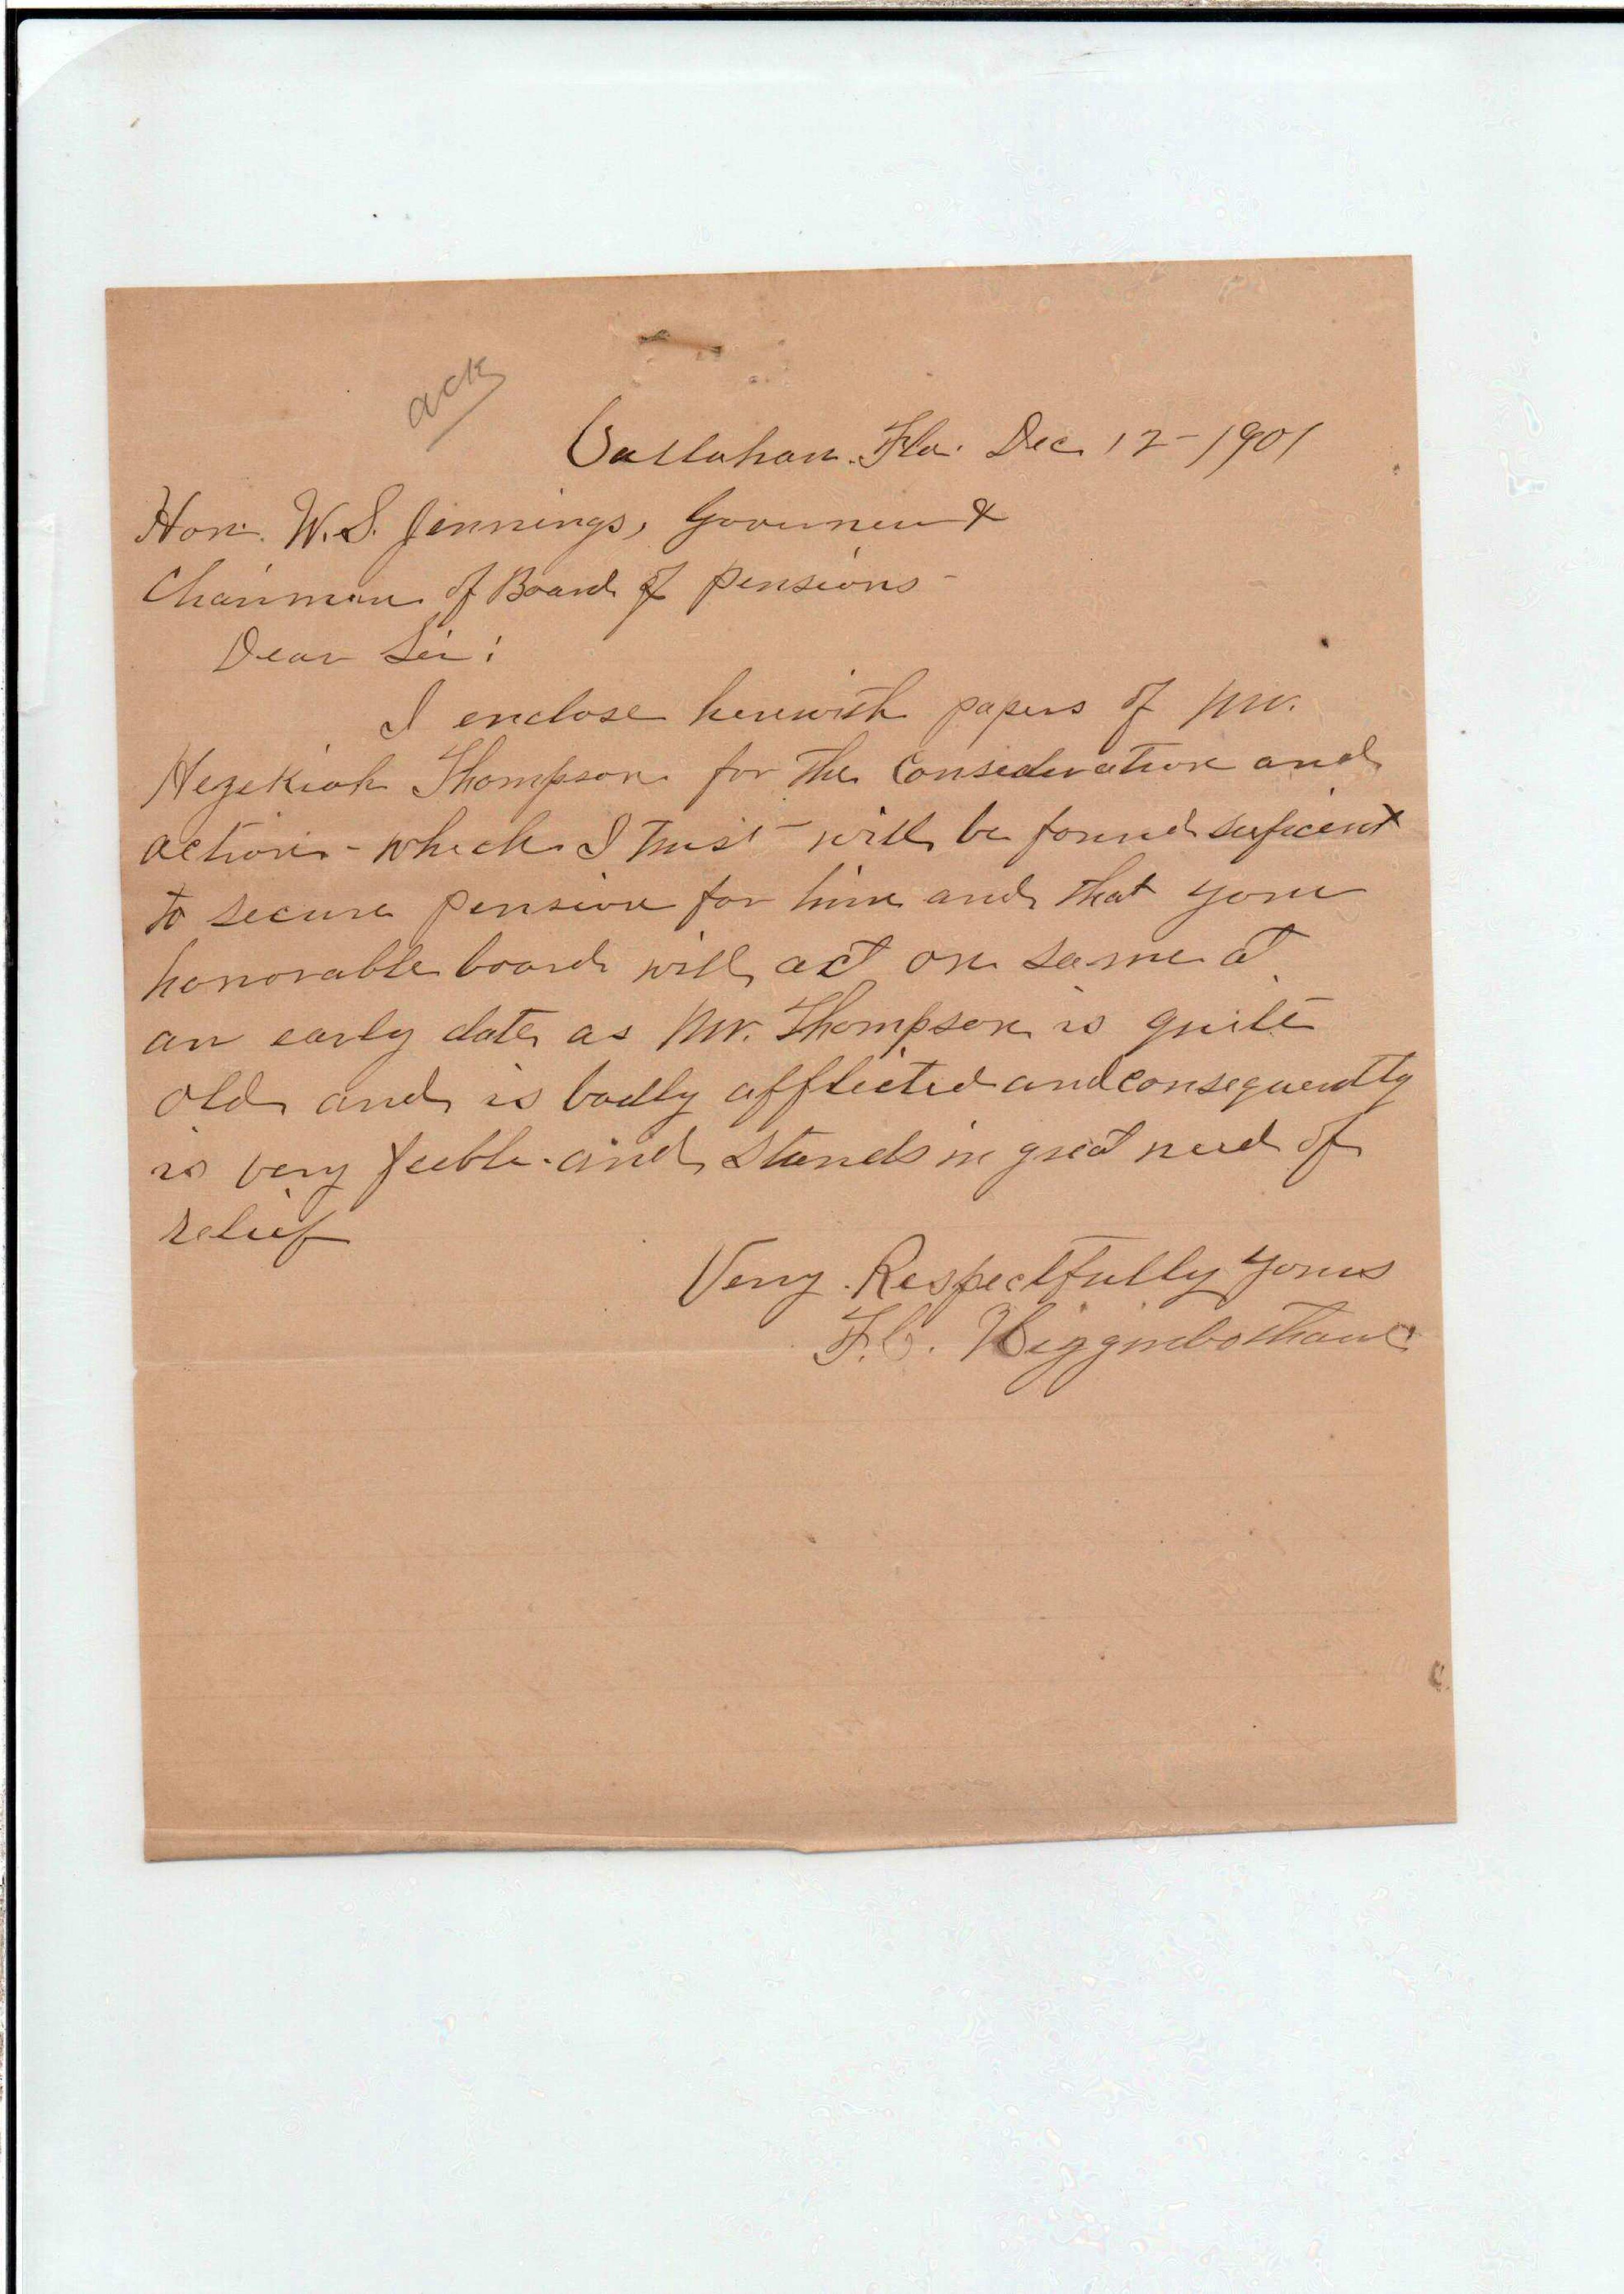 ack
Callahan. Fla. Dec 12-1901
Hon. W.S. Jennings, Governer &
Chairman of Board of pensions-
Dear Sir:
I enclose herewith papers of Mr.
Hezekiah Thompson for the Consideration and
action - which I trust - will be found suficient
to secure pension for him and that your
honorable board will act on same at
an early date as Mr. Thompson is quite
old and is badly afflicted and consequently
is very feeble and stands in great need of
relief
Very Respectfully yours
F.C. Higginbotham